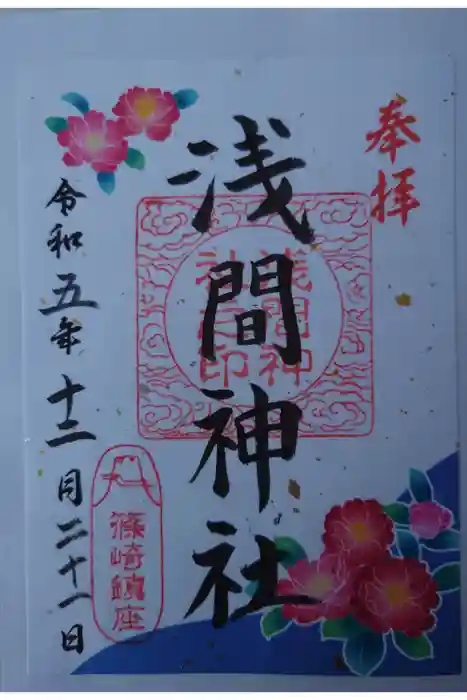 奉拝
浅間神社
浅間神
社之印
令和五年十二月二十一日
篠崎鎮座